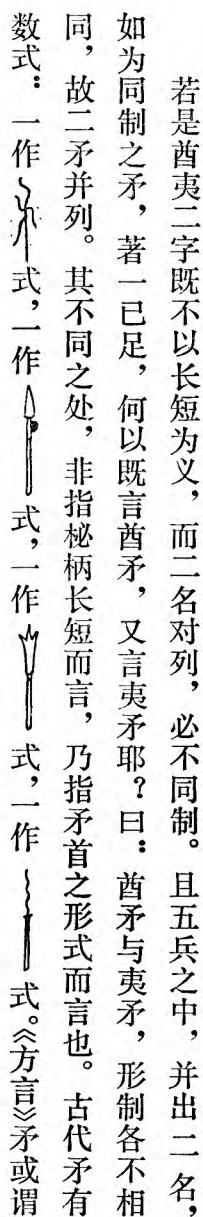 若是酋夷二字既不以长短为义，而二名对列，必不同制。且五兵之中，并出二名，
如为同制之矛，著一已足，何以既言酋矛，又言夷矛耶？曰：酋矛与夷矛，形制各不相
同，故二矛并列。其不同之处，非指柲柄长短而言，乃指矛首之形式而言也。古代矛有
数式：一作式，一作式，一作式，一作式。《方言》矛或谓